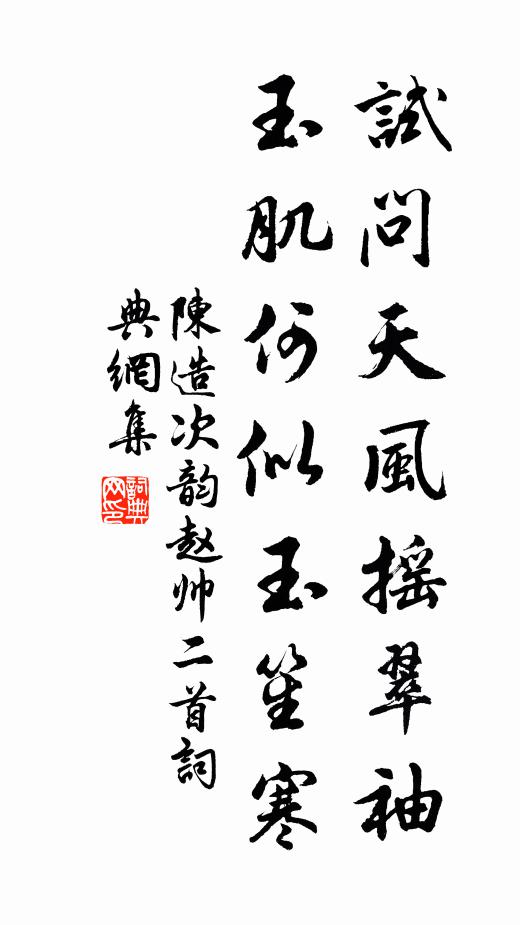 試問天風搖翠袖
玉肌何似玉笙寒
陳造次韵赵帅二首詞
典網集
詞典
网印